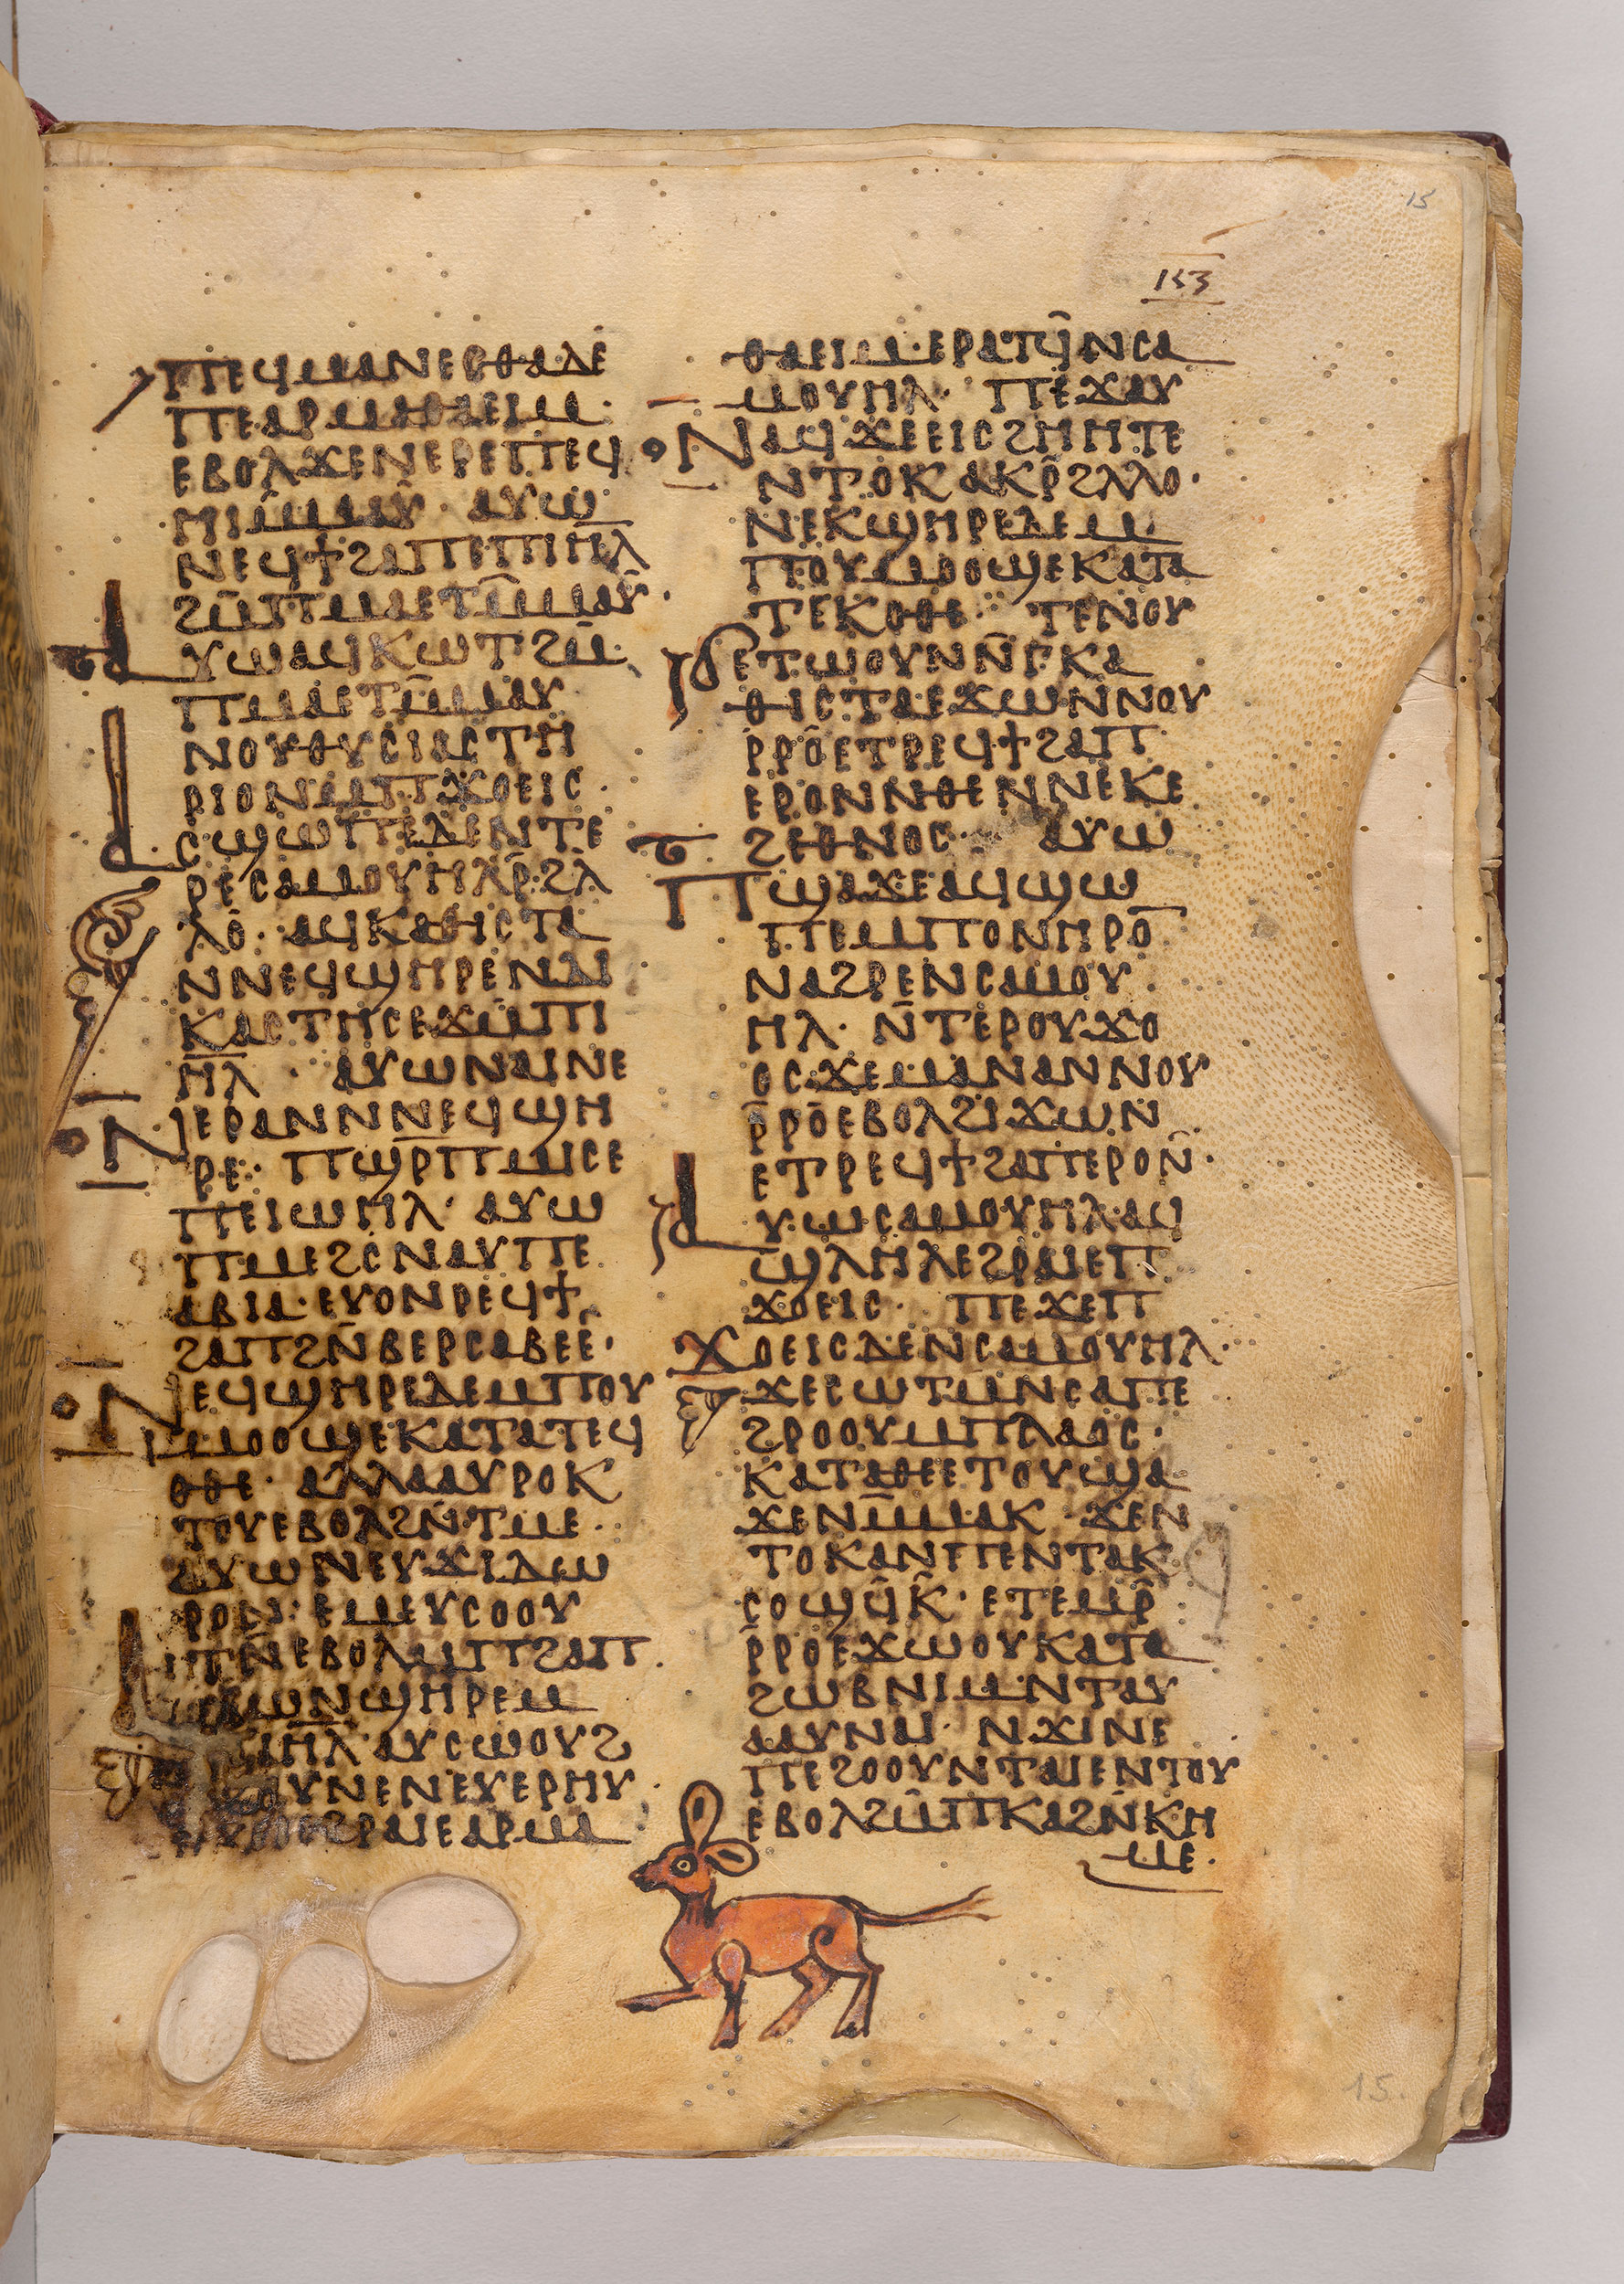 15
153
ⲡⲉϥⲙⲁⲛⲉⲃⲑⲁⲇⲉ
ⲡⲉ·ⲁⲣⲙⲁⲑⲁⲉⲓⲙ·
ⲉⲃⲟⲗϫⲉⲛⲉⲣⲉⲡⲉϥ
ⲏⲓⲙ̄ⲙⲁⲩ· ⲁⲩⲱ
ⲛⲉϥϯϩⲁⲡⲉⲡⲓⲏ̄ⲗ̄
ϩⲙ̄ⲡⲙⲁⲉⲧⲙ̄ⲙⲁⲩ·
ⲁⲩⲱⲁϥⲕⲱⲧϩⲙ̄
ⲡⲙⲁⲉⲧⲙ̄ⲙⲁⲩ
ⲛⲟⲩⲑⲩⲥⲓⲁⲥⲧⲏ
ⲣⲓⲟⲛⲙⲡϫⲟⲉⲓⲥ·
ⲁⲥϣⲱⲡⲉⲇⲉⲛⲧⲉ
ⲣⲉⲥⲁⲙⲟⲩⲏⲗⲣ̄ϩⲗ̄
ⲗⲟ· ⲁϥⲕⲁⲑⲓⲥⲧⲁ
ⲛⲛⲉϥϣⲏⲣⲉⲛⲇⲓ
ⲕⲁⲥⲧⲏⲥⲉϫⲙ̄ⲡⲓ
ⲏ̄ⲗ̄· ⲁⲩⲱⲛⲁⲓⲛⲉ
ⲛⲉⲣⲁⲛⲛⲛⲉϥϣⲏ
ⲣⲉ· ⲡϣⲣ̄ⲡⲙⲓⲥⲉ
ⲡⲉⲓⲱⲏⲗ· ⲁⲩⲱ
ⲡⲙⲉϩⲥⲛⲁⲩⲡⲉ
ⲁⲃⲓⲁ·ⲉⲩⲟⲛⲣⲉϥϯ
ϩⲁⲡϩⲛ̄ⲃⲉⲣⲥⲁⲃⲉⲉ·
ⲛⲉϥϣⲏⲣⲉⲇⲉⲙⲡⲟⲩ
ⲙⲟⲟϣⲉⲕⲁⲧⲁⲧⲉϥ
ⲑⲑⲉ· ⲁⲗⲗⲁⲁⲩⲣⲟⲕ
ⲧⲟⲩⲉⲃⲟⲗϩⲛ̄ⲧⲙⲉ·
ⲁⲩⲱⲛⲉⲩϫⲓⲇⲱ
ⲣⲟⲛ· ⲉⲙⲉⲩⲥⲟⲟⲩ
ⲧⲛ̄ⲉⲃⲟⲗⲙⲡϩⲁⲡ·
ⲱⲛϣⲏⲣⲉⲙ
ⲓⲏ̄ⲗ̄ ⲁⲩⲥⲱⲟⲩϩ
ⲩⲛⲉⲛⲉⲩⲉⲣⲏⲩ·
ⲉϩⲣⲁⲓⲉⲁⲣⲙⲁ
ⲑⲁⲉⲓⲙ·ⲉⲣⲁⲧϥ̄ⲛⲥⲁ
ⲙⲟⲩⲏⲗ· ⲡⲉϫⲁⲩ
ⲛⲁϥϫⲉⲉⲓⲥϩⲏⲏⲧⲉ
ⲛⲧⲟⲕⲁⲕⲣ̄ϩⲗⲗⲟ·
ⲛⲉⲕϣⲏⲣⲉⲇⲉⲙ
ⲡⲟⲩⲙⲟⲟϣⲉⲕⲁⲧⲁ
ⲧⲉⲕⲑⲑⲉ· ⲧⲉⲛⲟⲩ
ϭⲉⲧⲱⲟⲩⲛⲛⲅ̄ⲕⲁ
ⲑⲓⲥⲧⲁⲉϫⲱⲛⲛⲟⲩ
ⲣ̄ⲣⲟⲉⲧⲣⲉϥϯϩⲁⲡ
ⲉⲣⲟⲛⲛⲑⲉⲛⲛⲉⲕⲉ
ϩⲉⲑⲛⲟⲥ· ⲁⲩⲱ
ⲡϣⲁϫⲉⲁϥϣⲱ
ⲡⲉⲙⲡⲟⲛⲏⲣⲟ̄
ⲛⲁϩⲣⲉⲛⲥⲁⲙⲟⲩ
ⲏⲗ· ⲛ̄ⲧⲉⲣⲟⲩϫⲟ
ⲟⲥϫⲉⲙⲁⲛⲁⲛⲛⲟⲩ
ⲣ̄ⲣⲟⲉⲃⲟⲗϩⲓϫⲱⲛ
ⲉⲧⲣⲉϥϯϩⲁⲡⲉⲣⲟⲛ·
ⲁⲩⲱⲥⲁⲙⲟⲩⲏⲗ·ⲁϥ
ϣⲗⲏⲗⲉϩⲣⲁⲓⲉⲡ
ϫⲟⲉⲓⲥ· ⲡⲉϫⲉⲡ
ϫⲟⲉⲓⲥⲇⲉⲛⲥⲁⲙⲟⲩⲏⲗ·
ϫⲉⲥⲱⲧⲙ̄ⲛⲥⲁⲡⲉ
ϩⲣⲟⲟⲩⲙⲡⲗⲁⲟⲥ·
ⲕⲁⲧⲁⲑⲉⲉⲧⲟⲩϣⲁ
ϫⲉⲛⲙ̄ⲙⲁⲕ ϫⲉⲛ
ⲧⲟⲕⲁⲛⲡⲉⲛⲧⲁⲕ
ⲥⲟϣϥ̄ⲕ̄· ⲉⲧⲉⲙⲣ̄
ⲣ̄ⲣⲟⲉϫⲱⲟⲩⲕⲁⲧⲁ
ϩⲱⲃⲛⲓⲙ·ⲛⲧⲁⲩ
ⲁⲁⲩⲛⲁⲓ· ⲛϫⲓⲛⲉ
ⲡⲉϩⲟⲟⲩⲛⲧⲁⲓⲉⲛⲧⲟⲩ
ⲉⲃⲟⲗϩⲙ̄ⲡⲕⲁϩⲛ̄ⲕⲏ
ⲙⲉ·
15.